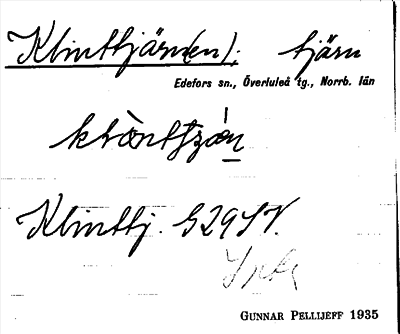 Klinttjärn(en); tjärn
Edefors sn., Överluleå tg., Norrb. län
Klinttj. G29SV.
GUNNAR PELLIJEFF 1935